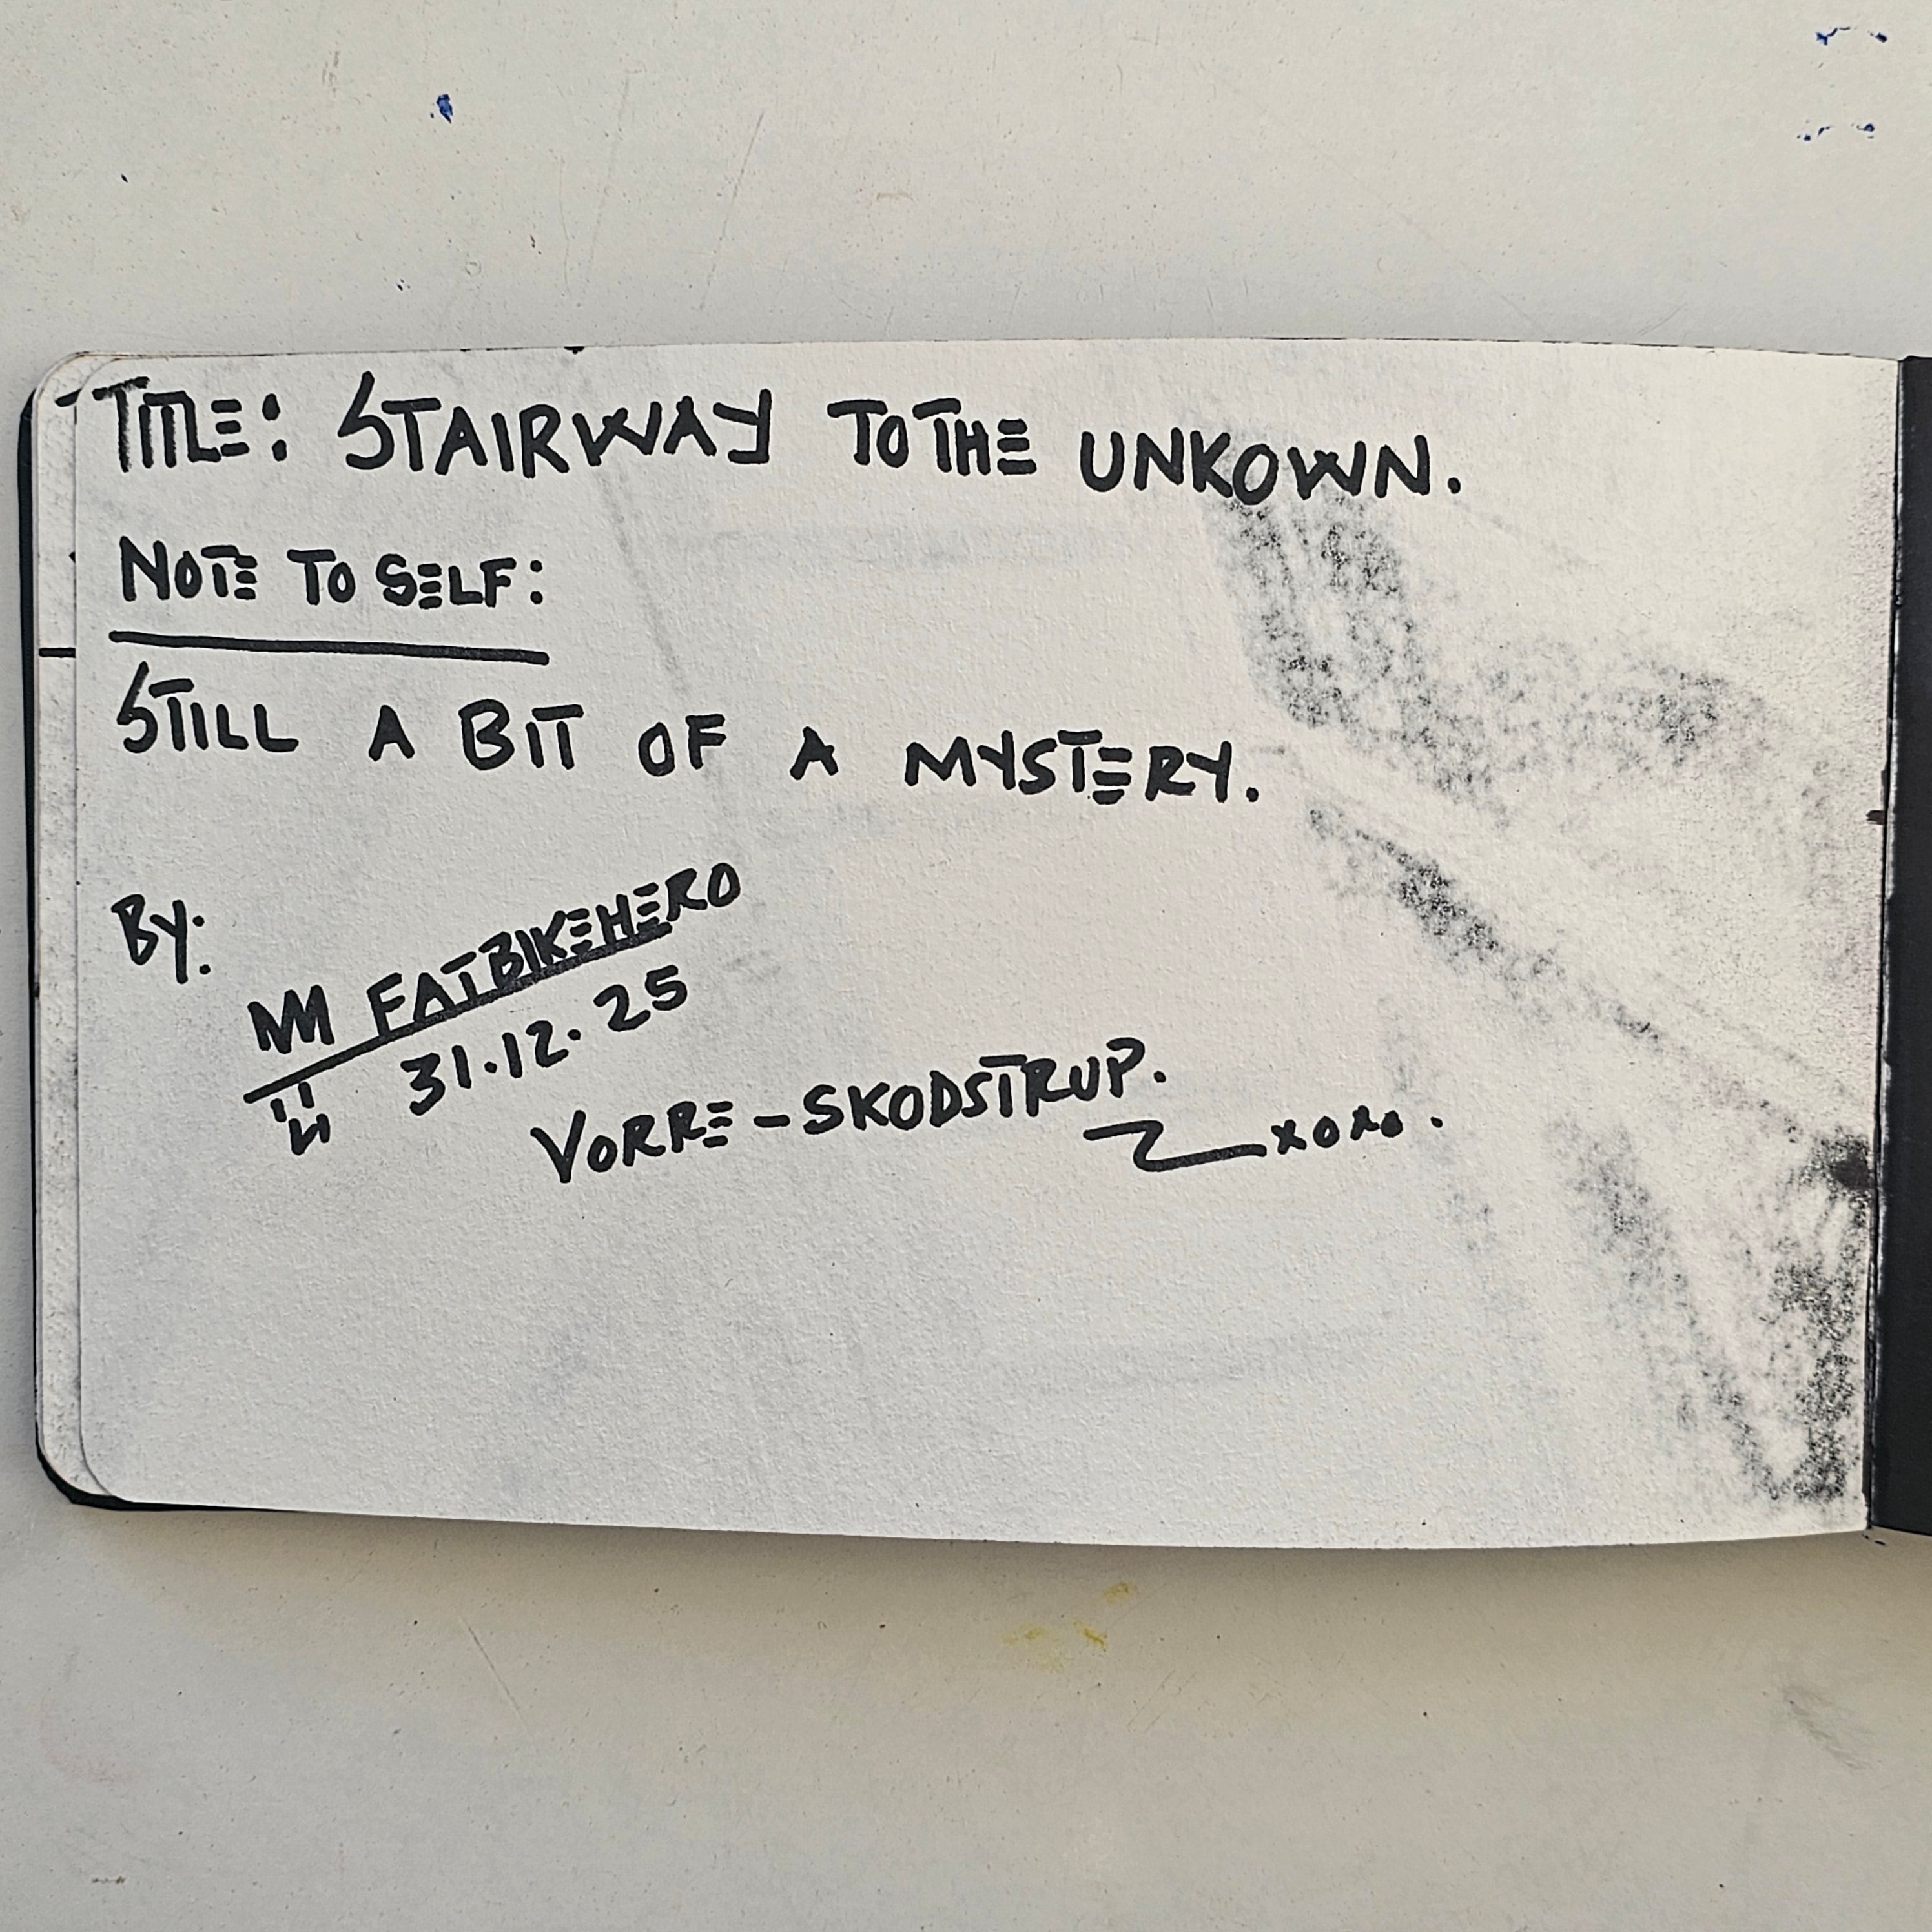 TITLE: STAIRWAY TO THE UNKOWN.
NOTE TO SELF:
STILL A BIT OF A MYSTERY.
BY:
FATBIKEHERO
31.12.25
VORRE - SKODSTRUP.
xoxo.